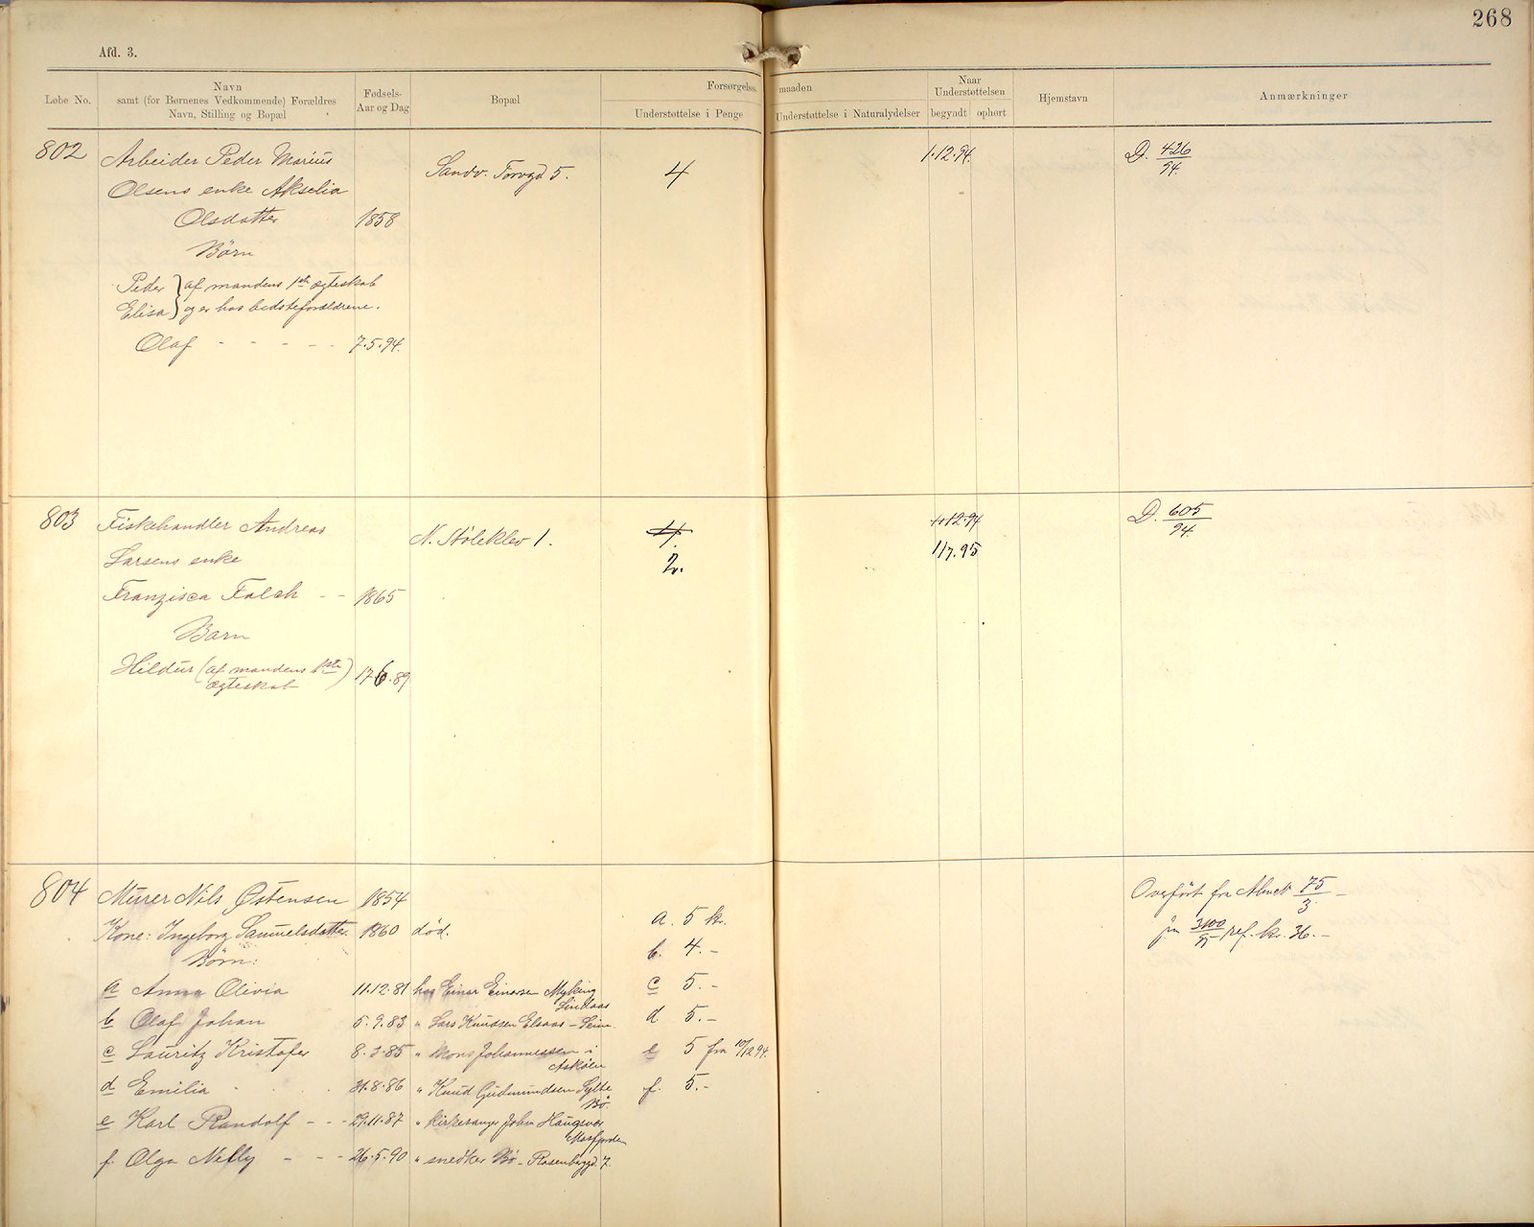 268
Afd. 3.
Løbe No.
Navn
samt (for Børnenes Vedkommende) Forældres
Navn, Stilling og Bopæl
Fødsels-
Aar og Dag
Bopæl
Forsørgelsesmaaden
Understøttelse i Penge
Understøttelse i Naturalydelser
Naar
Understøttelsen
begyndt
ophørt
Hjemstavn
Anmærkninger
802 Arbeider Peder Marius Sandv. Torvgd 5. 4 1.12.94. D. 426/94.
Olsens enke Akselia
Olsdatter 1858
Børn
Peder } af mandens 1ste ægteskab
Elisa } og er hos bedsteforældrene.
Olaf - - - - - 7.5.94.
803 Fiskehandler Andreas N. Støleklev 1. 4. 1.12.94 D. 605/94.
Larsens enke 2. 1/7.95
Franzisca Falch - - 1865
Barn
Hildur (af mandens 1ste ægteskab) 17.6.89
804 Murer Nils Østensen 1854 Overført fra 75/3 -
Kone: Ingeborg Samuelsdatter 1860 død. a. 5 kr. 3100/95 ref. kr. 36.-
Børn: b. 4.-
a Anna Olivia 11.12.81 hos Einar Einarsen Myking Lindaas c 5.-
b Olaf Johan 5.9.83 " Lars Knudsen Elsaas - Seim d 5.-
c Lauritz Kristofer 8.3.85 " Mons Johannessen i Askøen e 5 fra 10/12 94.
d Emilia 31.8.86 " Knud Gudmundsen Sylte Bø. f. 5.-
e Karl Randolf - - - 29.11.87 " kirkesanger John Haugsvær Masfjorden
f. Olga Nelly - - - 26.5.90 " snedker Bø - Rosenbergd. 7.